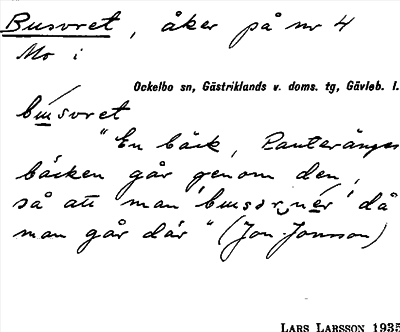 Busvret, åker på nr 4
Mo i
Ockelbo sn, Gästriklands v. doms. tg, Gävleb. l.
busvret
"En bäck, Ranteränges
bäcken går genom den,
så att man 'busar ner' då
man går där" (Jon Jonsson)
LARS LARSSON 1935